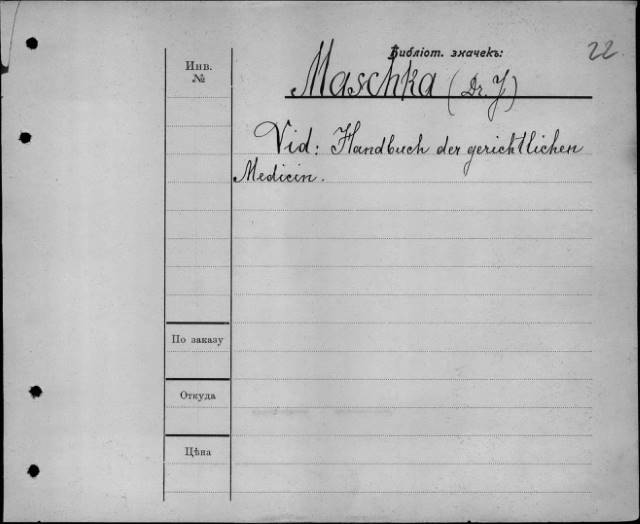 Библіот. значекъ:
22.
Инв.
№
Maschka (Dr. J)
Vid: Handbuch der gerichtlichen
Medicin.
По заказу
Откуда
Цѣна